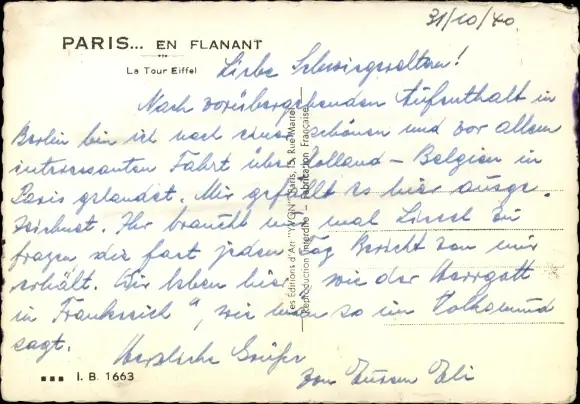 31/10/40
PARIS... EN FLANANT
La Tour Eiffel
Liebe Schwiegereltern!
Nach vorübergehenden Aufenthalt in
Berlin bin ich nach einer schönen und vor allem
interessanten Fahrt über Holland – Belgien in
Paris gelandet. Mir gefällt es hier ausge-
zeichnet. Ihr braucht nur mal Liesel zu
fragen die fast jeden Tag Bericht von mir
erhält. Wir leben hier „wie der Herrgott
in Frankreich", wie man so im Volksmund
sagt.
Herzliche Grüße
von Eurem
Les Editions d'Art "YVON", Paris, 15, Rue Martel
Reproduction interdite - Fabrication Française
I. B. 1663